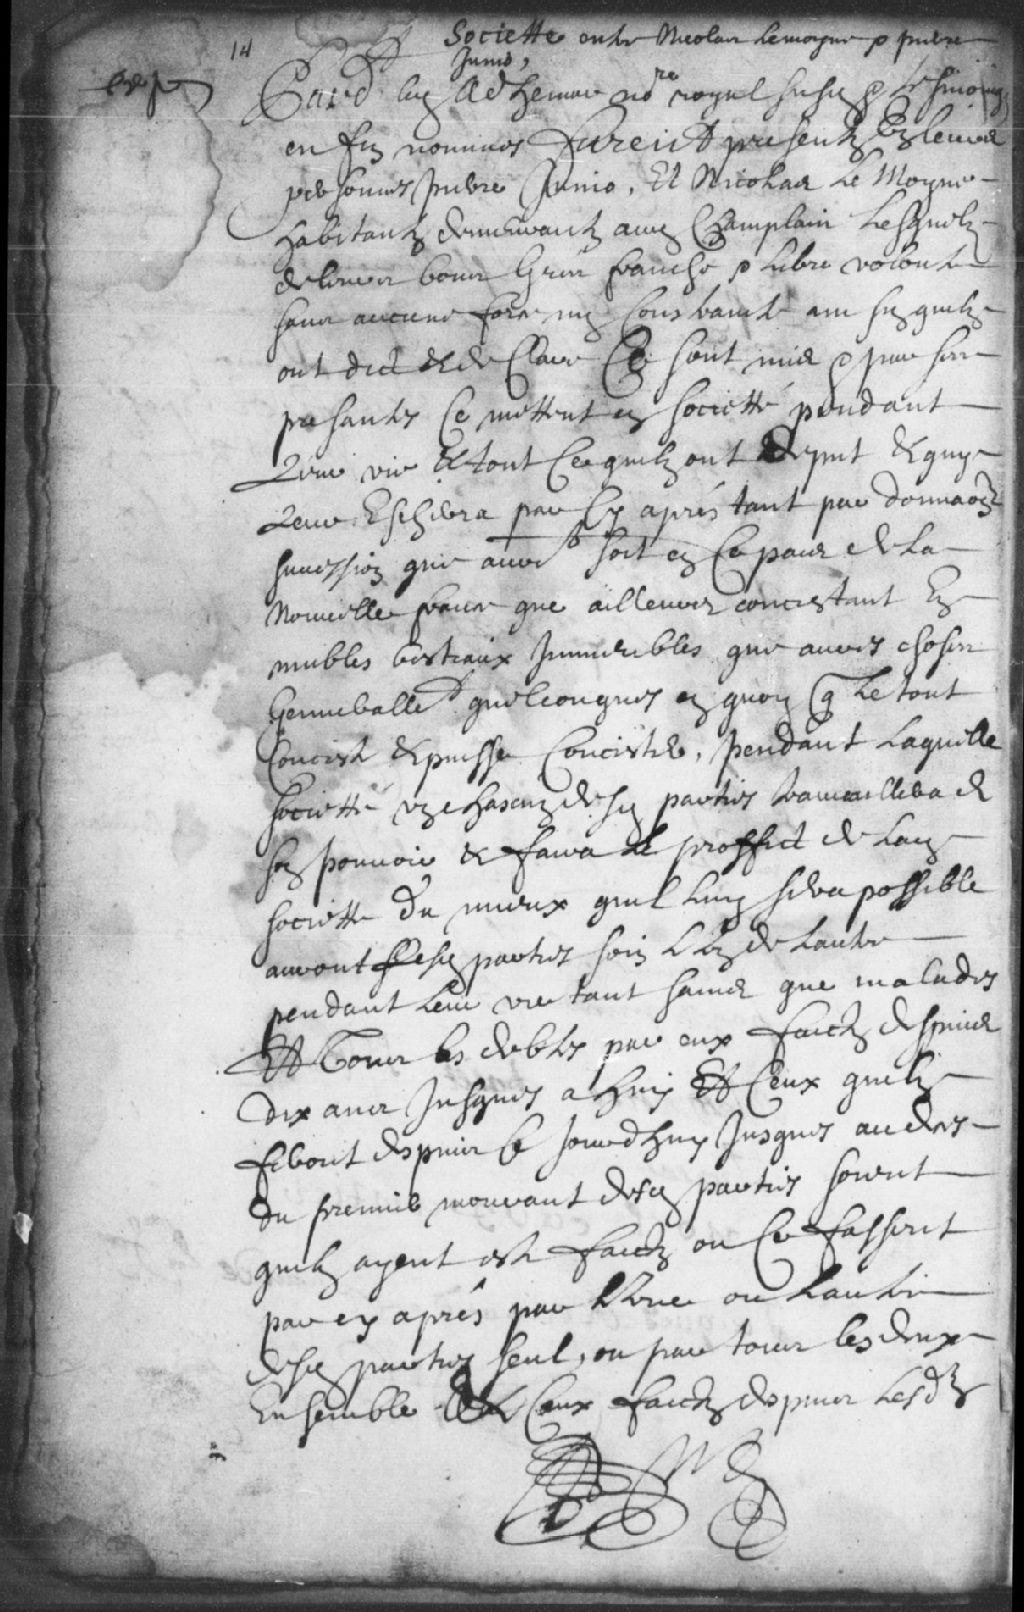 14
Societte entre Nicolas Lemoyne & pierre
Junio,
Pard' luy Adhemar no.re royal susig & tesmoings
en fin nommes Furent presents En leurs
personnes pierre Junio, Et Nicolas Le Moyne
habitants demeurants aud Champlain Lesquels
de leurs bons Gréz franche & libre volonté
sans aucune force ny Contrainte ainsy quilz
ont dict & declare Ce sont mis & par ses
presantes Ce mettent en societté pendant
Leur vie & tout Ce quilz ont & quy
Leur Eschera par Cy aprés tant par donnaon
succession que autre soit en Ce pais de La
Nouvelle france que ailleurs concistant En
meubles bestiaux Immeubles que autres choses
Generalle.t quelconques en quoy q Le tout
Concist & puisse Concister, pendant Laquelle
societté un chascun desd parties travaillera de
son pouvoir & faira le proffict de Lad
societte du mieux quil luy sera possible
auront Lesd parties soin L'un de Lautre
pendant leur vie tant sains que malades
Et Tous les debtes par eux faicts despuis
dix ans Jusques a huy Et Ceux quilz
feront despuis Ce jourdhuy Jusques au deces
du premier mourant desd parties soient
quilz ayent esté faicts ou Ce fassent
par cy aprés par L'une ou Lautre
desd parties seul, ou par tous les deux
Ensemble & Ceux faicts despuis Lesd